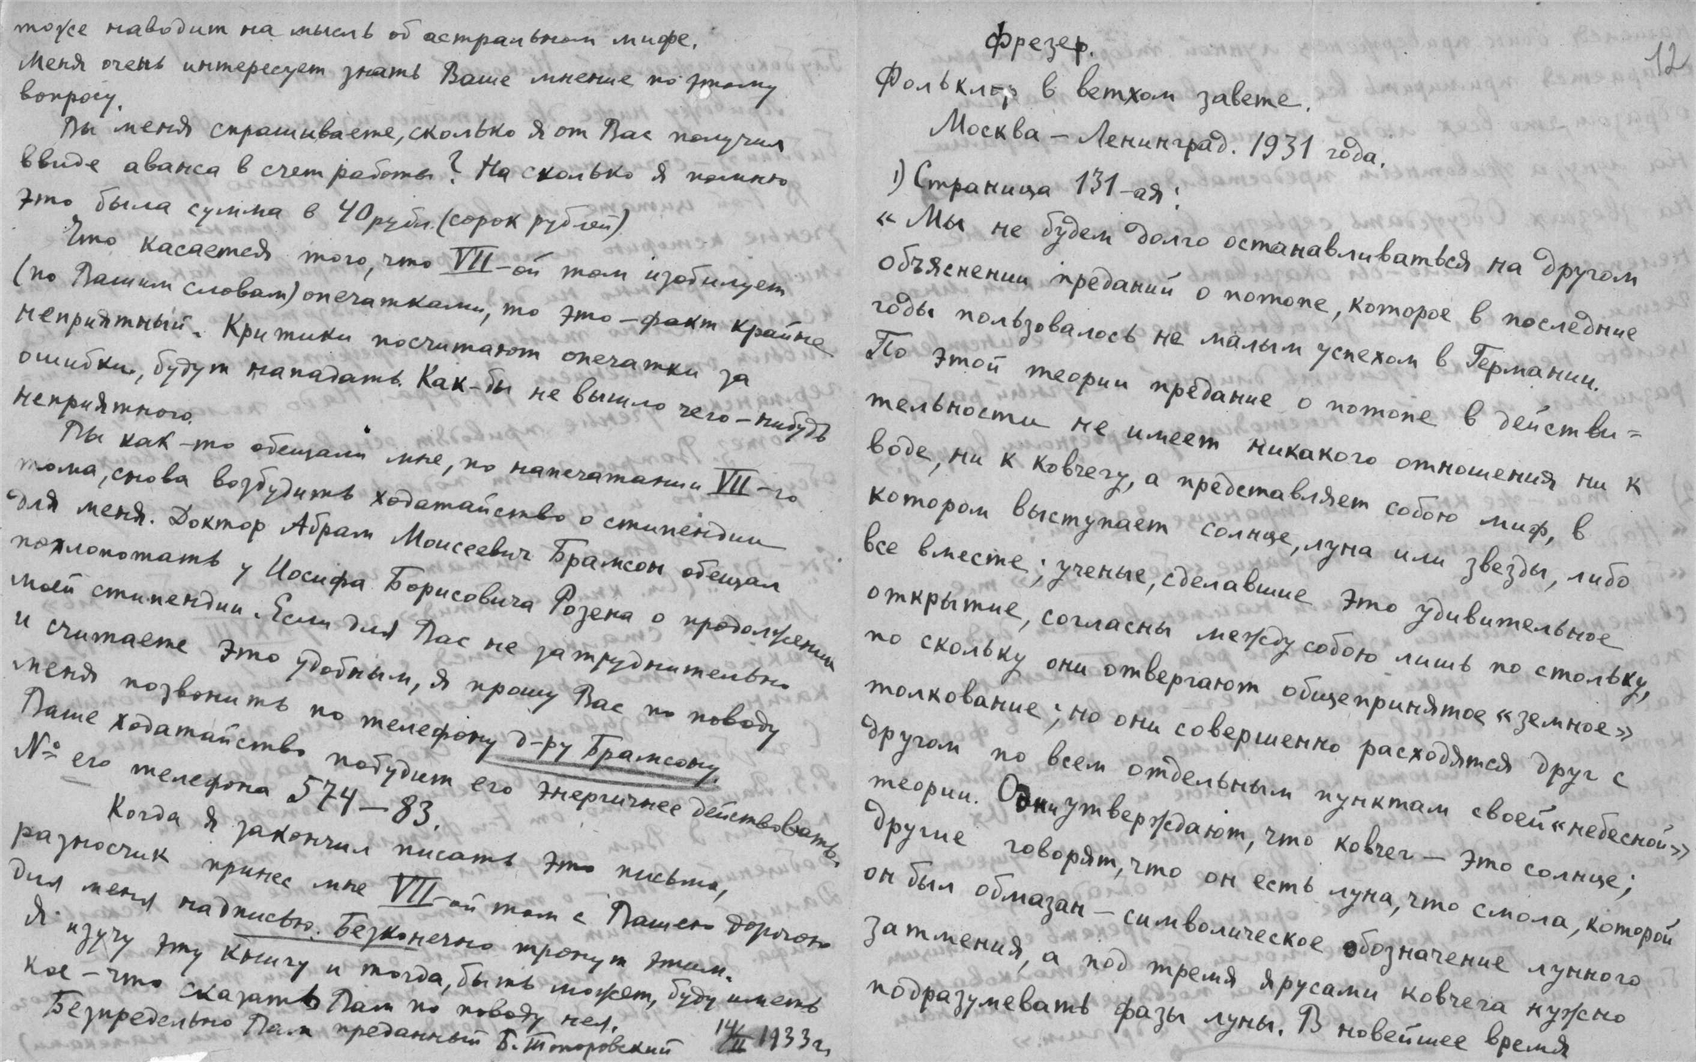 тоже наводит на мысль об астральном мифе.
Меня очень интересует знать Ваше мнение по этому
вопросу.
Вы меня спрашиваете, сколько я от Вас получил
ввиде аванса в счет работы? На сколько я помню
это была сумма в 40 рубл. (сорок рублей)
Что касается того, что VII-ой том изобилует
(по Вашим словам) опечатками, то это – факт крайне
неприятный. Критики посчитают опечатки за
ошибки, будут нападать. Как-бы не вышло чего-нибудь
неприятного.
Вы как-то обещали мне, по напечатании VII-го
тома, снова возбудить ходатайство о стипендии
для меня. Доктор Абрам Моисеевич Брамсон обещал
похлопотать у Иосифа Борисовича Розена о продолжении
моей стипендии. Если для Вас не затруднительно
и считаете это удобным, я прошу Вас по поводу
меня позвонить по телефону д-ру Брамсону.
Ваше ходатайство побудит его энергичнее действовать.
№ его телефона 574–83.
Когда я закончил писать это письмо,
разносчик принес мне VII-ой том с Вашею дорогою
для меня надписью. Безконечно тронут этим.
Я изучу эту книгу и тогда, быть может, буду иметь
кое-что сказать Вам по поводу нея.
Безпредельно Вам преданный Б. Топоровский 14/II 1933 г.
12
Фрезер.
Фольклор в ветхом завете.
Москва – Ленинград. 1931 года.
1) Страница 131-ая:
«Мы не будем долго останавливаться на другом
объяснении преданий о потопе, которое в последние
годы пользовалось не малым успехом в Германии.
По этой теории предание о потопе в действи=
тельности не имеет никакого отношения ни к
воде, ни к ковчегу, а представляет собою миф, в
котором выступает солнце, луна или звезды, либо
все вместе; ученые, сделавшие это удивительное
открытие, согласны между собою лишь по стольку,
по скольку они отвергают общепринятое «земное»
толкование; но они совершенно расходятся друг с
другом по всем отдельным пунктам своей «небесной»
теории. Одни утверждают, что ковчег – это солнце;
другие говорят, что он есть луна, что смола, которой
он был обмазан – символическое обозначение лунного
затмения, а под тремя ярусами ковчега нужно
подразумевать фазы луны. В новейшее время